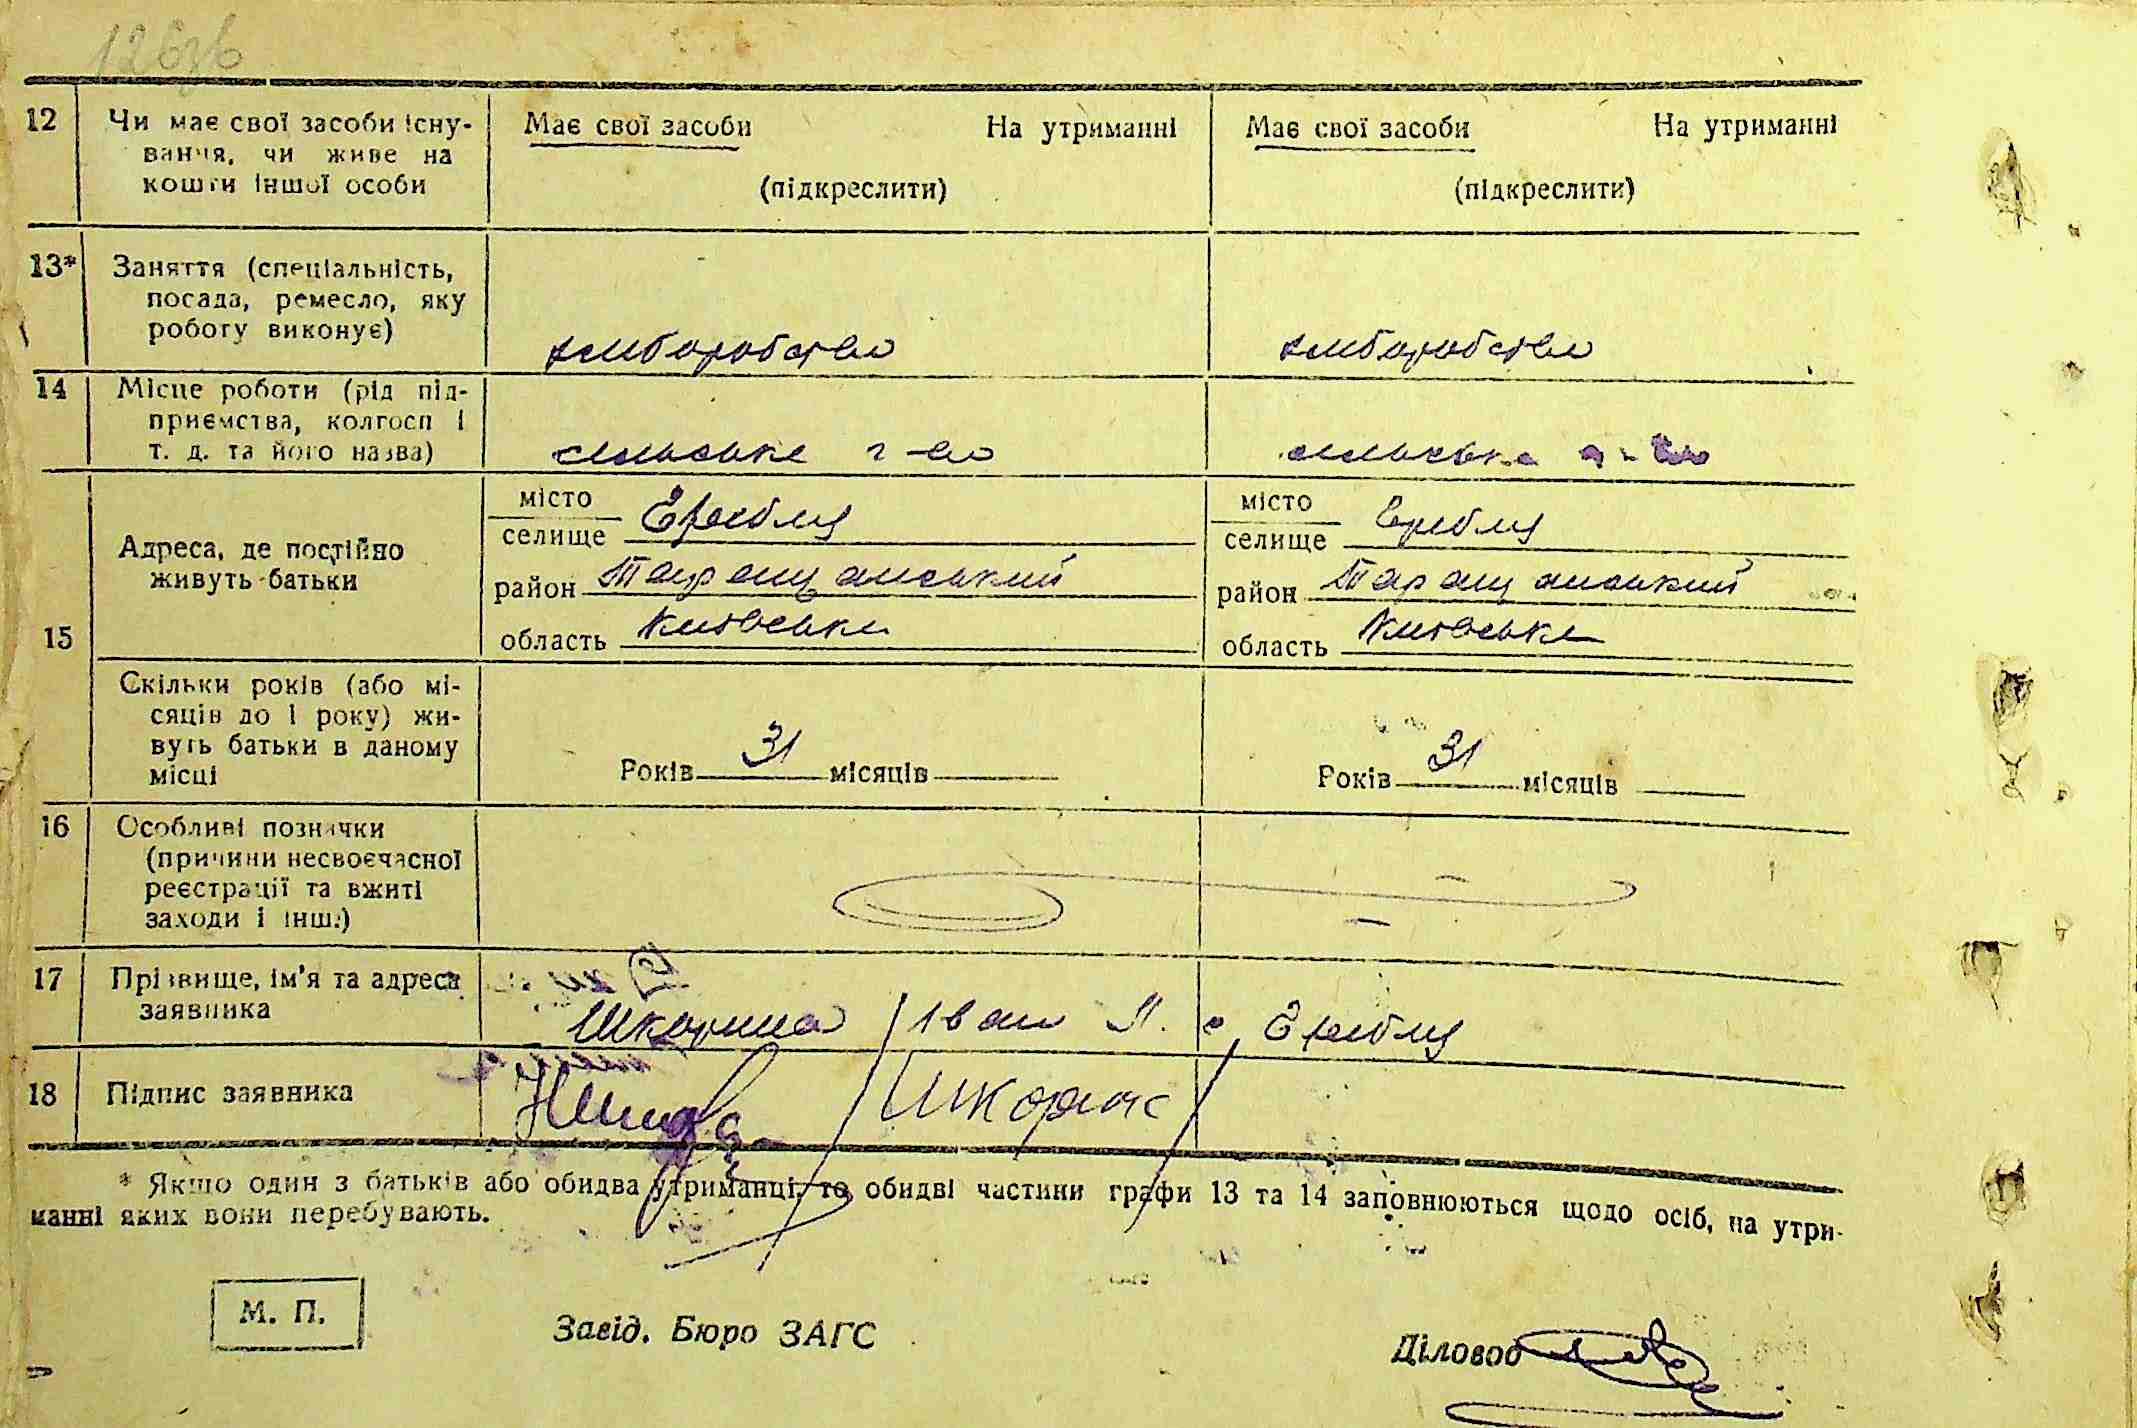 12 Чи має свої засоби існу- Має свої засоби На утриманні Має свої засоби На утриманні
вання, чи живе на
кошти іншої особи (підкреслити) (підкреслити)
13* Заняття (спеціальність,
посада, ремесло, яку
роботу виконує) хліборобство хліборобство
14 Місце роботи (рід під-
приємства, колгосп і
т. д. та його назва) сільське г-во сільське г-во
15 Адреса, де постійно
живуть батьки
місто місто
селище селище
район Таращанський район Таращанський
область Київська область Київська
Скільки років (або мі-
сяців до 1 року) жи-
вуть батьки в даному
місці Років 31 місяців Років 31 місяців
16 Особливі позначки
(причини несвоєчасної
реєстрації та вжиті
заходи і інш.)
17 Прізвище, ім'я та адреса
заявника Шкорина Іван
18 Підпис заявника
* Якщо один з батьків або обидва утриманці, то обидві частини графи 13 та 14 заповнюються щодо осіб, на утри-
манні яких вони перебувають.
М. П.
Завід. Бюро ЗАГС Діловод